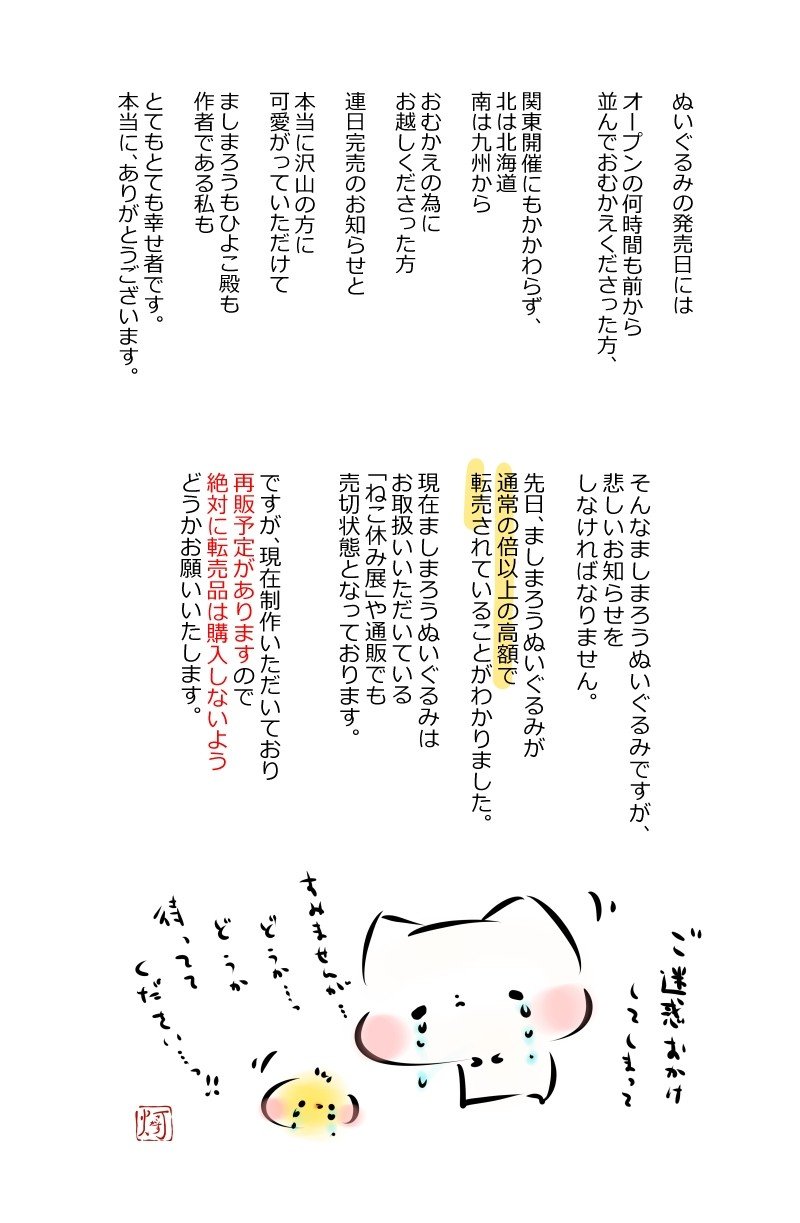 ぬいぐるみの発売日には
オープンの何時間も前から
並んでおむかえくださった方、
関東開催にもかかわらず、
北は北海道
南は九州から
おむかえの為に
お越しくださった方
連日完売のお知らせと
本当に沢山の方に
可愛がっていただけて
ましまろうもひよこ殿も
作者である私も
とてもとても幸せ者です。
本当に、ありがとうございます。
そんなましまろうぬいぐるみですが、
悲しいお知らせを
しなければなりません。
先日、ましまろうぬいぐるみが
通常の倍以上の高額で
転売されていることがわかりました。
現在ましまろうぬいぐるみは
お取扱いいただいている
「ねこ休み展」や通販でも
売切状態となっております。
ですが、現在制作いただいており
再販予定がありますので
絶対に転売品は購入しないよう
どうかお願いいたします。
ご迷惑おかけ
してしまって
すみませんが…
どうか…っ
どうか
待ってて
ください…っ!!